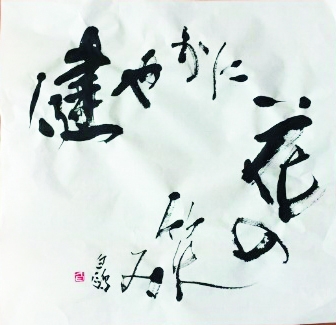 健やかに
花の
笑み